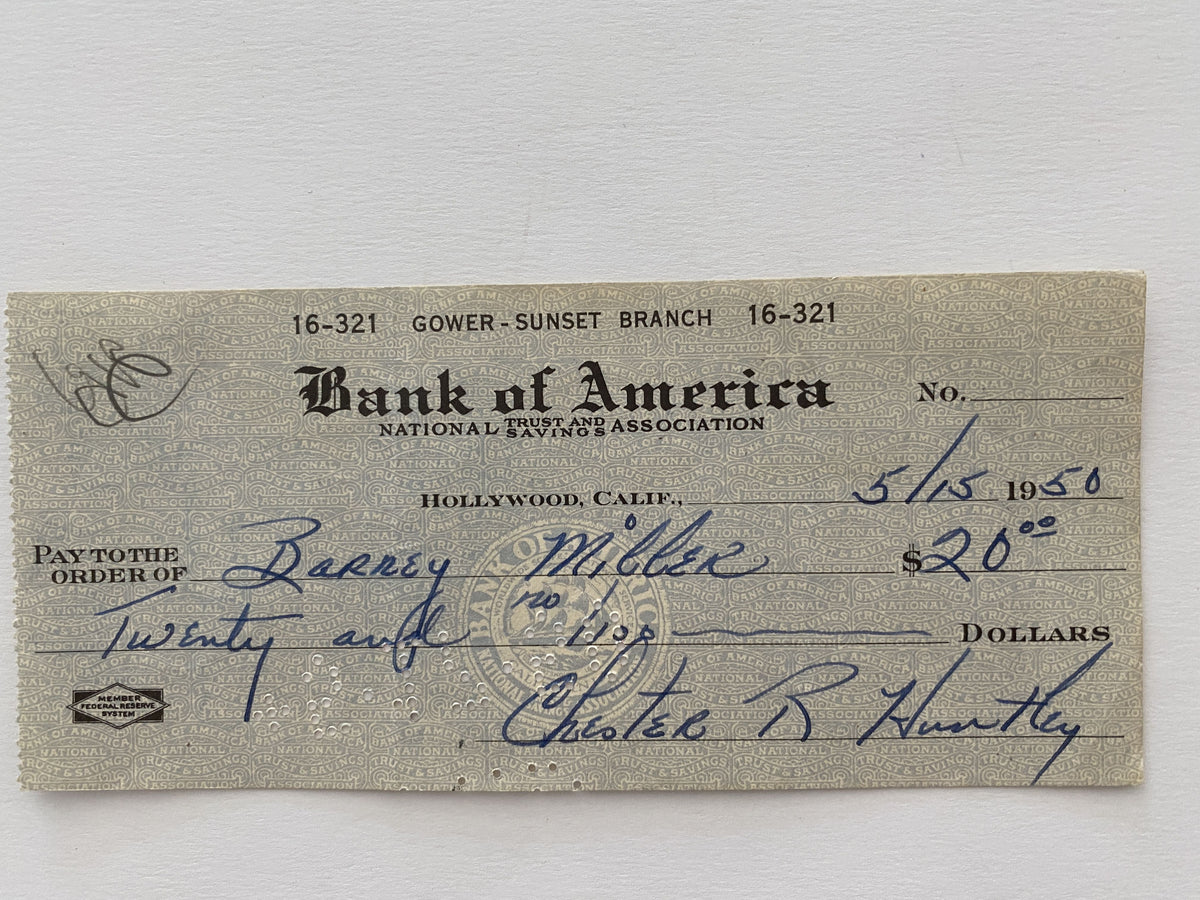 16-321 GOWER-SUNSET BRANCH 16-321
Bank of America No.
NATIONAL TRUST AND SAVINGS ASSOCIATION
HOLLYWOOD, CALIF., 5/15 1950
PAY TO THE ORDER OF Barney Miller $20 00
Twenty and no/100 DOLLARS
MEMBER
FEDERAL RESERVE
SYSTEM
Chester R Huntley